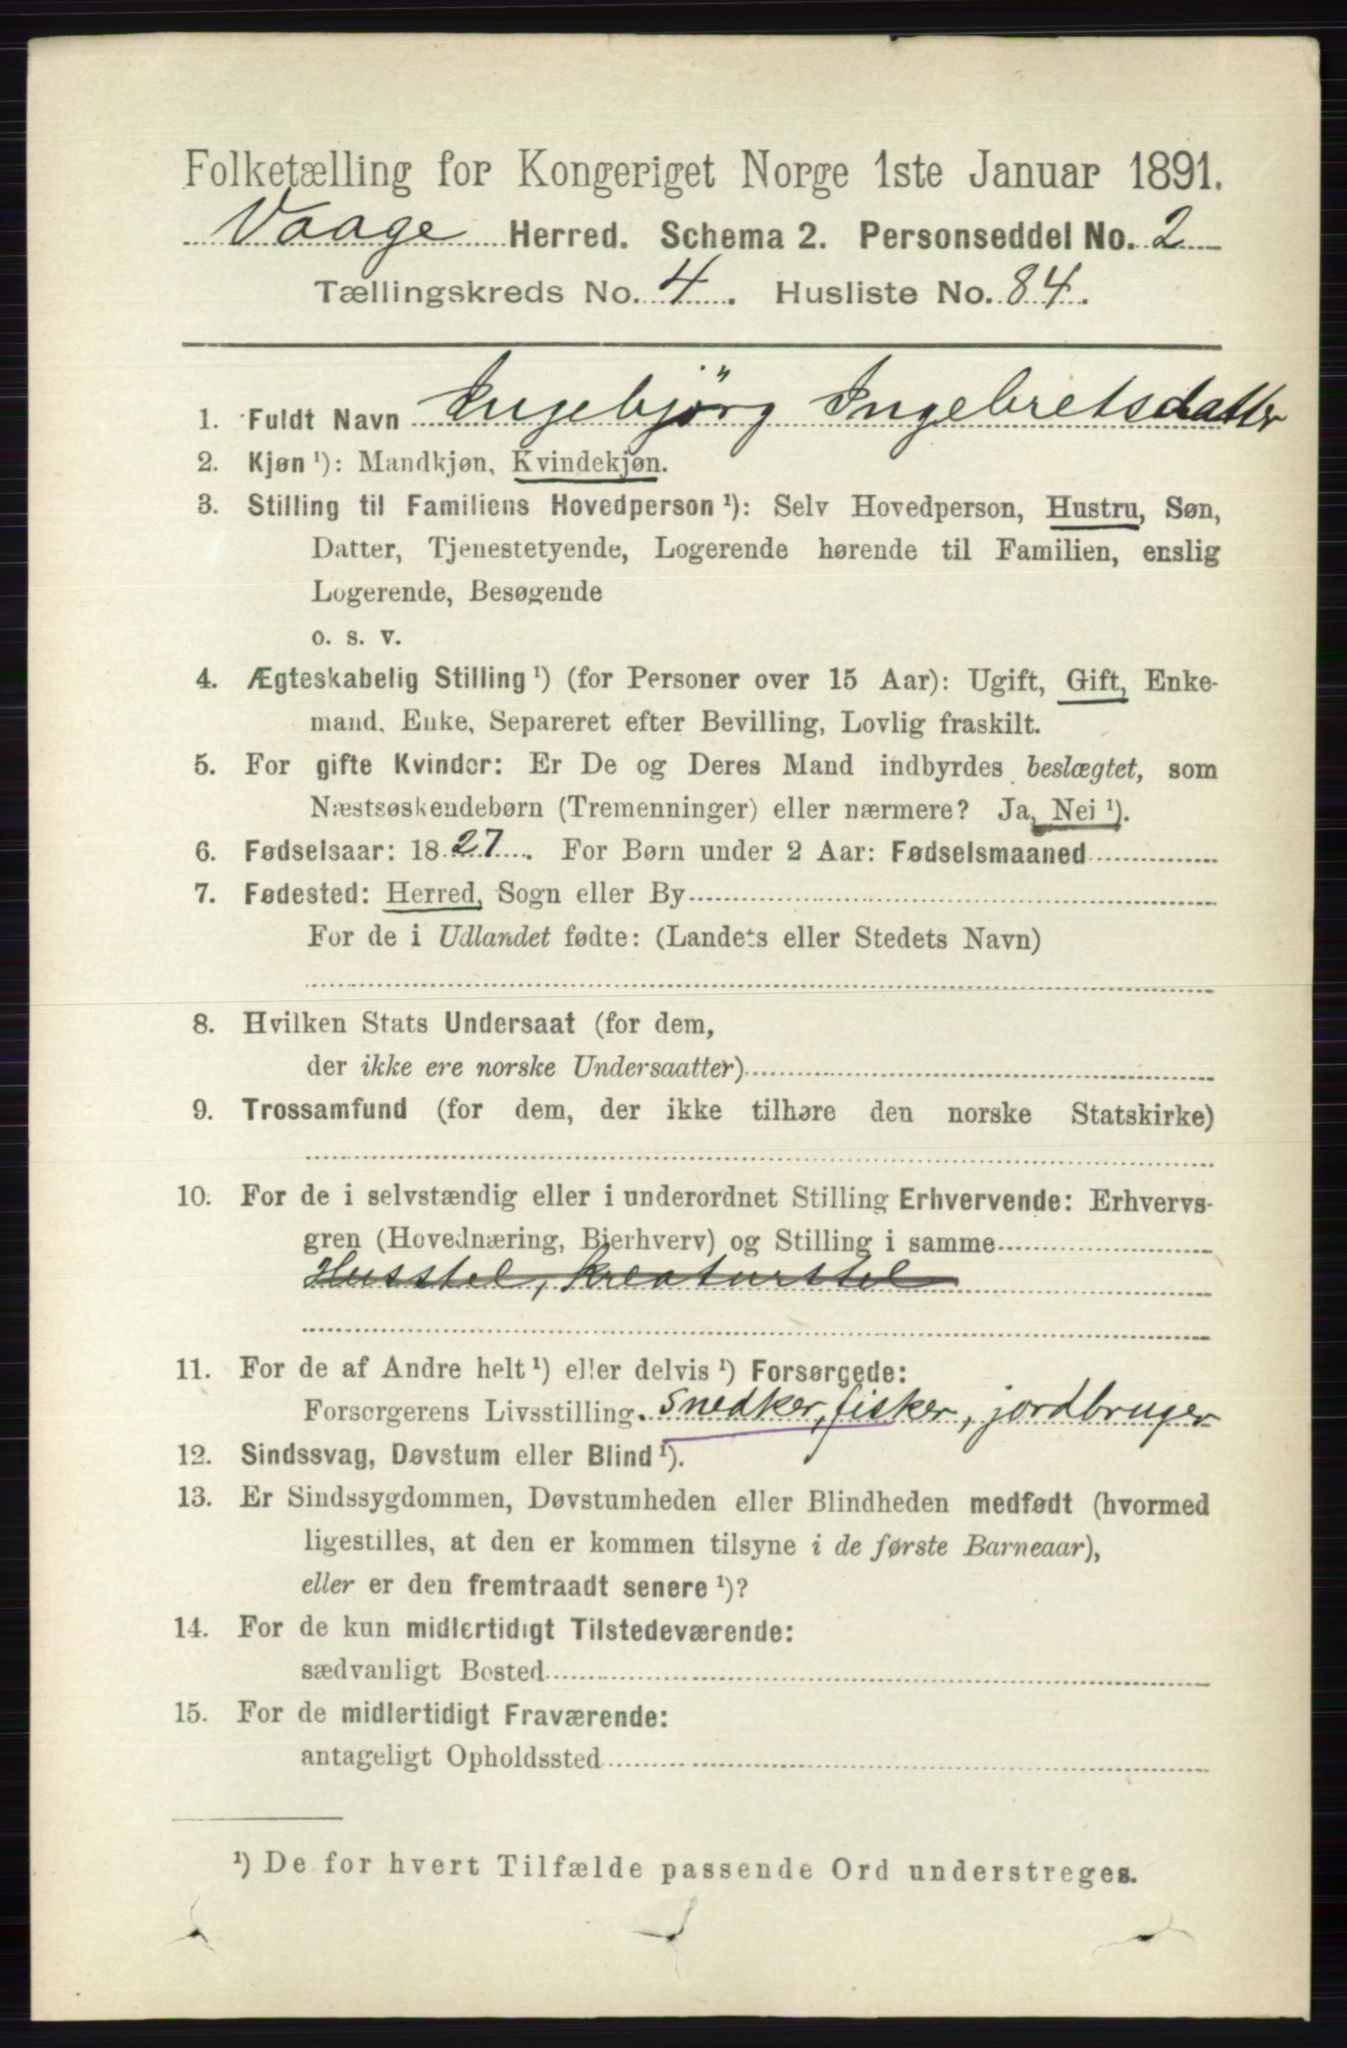 Folketælling for Kongeriget Norge 1ste Januar 1891.
Vaage Herred. Schema 2. Personseddel No. 2
Tællingskreds No. 4. Husliste No. 84.
1. Fuldt Navn Ingebjörg Ingebretsdatter
2. Kjøn ¹): Mandkjøn, Kvindekjøn.
3. Stilling til Familiens Hovedperson ¹): Selv Hovedperson, Hustru, Søn,
Datter, Tjenestetyende, Logerende hørende til Familien, enslig
Logerende, Besøgende
o. s. v.
4. Ægteskabelig Stilling ¹) (for Personer over 15 Aar): Ugift, Gift, Enke-
mand, Enke, Separeret efter Bevilling, Lovlig fraskilt.
5. For gifte Kvinder: Er De og Deres Mand indbyrdes beslægtet, som
Næstsøskendebørn (Tremenninger) eller nærmere? Ja, Nei ¹).
6. Fødselsaar: 1827. For Børn under 2 Aar: Fødselsmaaned
7. Fødested: Herred, Sogn eller By
For de i Udlandet fødte: (Landets eller Stedets Navn)
8. Hvilken Stats Undersaat (for dem,
der ikke ere norske Undersaatter)
9. Trossamfund (for dem, der ikke tilhøre den norske Statskirke)
10. For de i selvstændig eller i underordnet Stilling Erhvervende: Erhvervs-
gren (Hovednæring, Bierhverv) og Stilling i samme
Husstel, Kreaturstel
11. For de af Andre helt ¹) eller delvis ¹) Forsørgede:
Forsørgerens Livsstilling. Snedker, fisker, jordbruger
12. Sindssvag, Døvstum eller Blind ¹).
13. Er Sindssygdommen, Døvstumheden eller Blindheden medfødt (hvormed
ligestilles, at den er kommen tilsyne i de første Barneaar),
eller er den fremtraadt senere ¹)?
14. For de kun midlertidigt Tilstedeværende:
sædvanligt Bosted
15. For de midlertidigt Fraværende:
antageligt Opholdssted
¹) De for hvert Tilfælde passende Ord understreges.